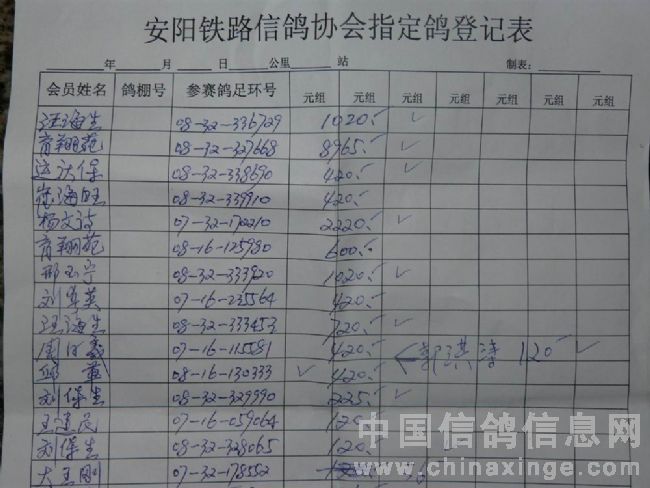 安阳铁路信鸽协会指定鸽登记表
年 月 日 公里 站 制表:
会员姓名 鸽棚号 参赛鸽足环号 元组 元组 元组 元组 元组 元组
汪海生 08-32-336729 1020.- ✓
育翔苑 08-32-327668 8965.- ✓
08-32-338690 420.- ✓
08-32-339910 420.-
杨文 07-32-170210 2220.- ✓
育翔苑 08-16-125980 600.-
邢玉宁 08-32-333920 1020.- ✓
刘 英 07-16-235564 420.-
汪海生 08-32-333453 720.- ✓
07-16-115581 420.- 郭洪 120 ✓
08-16-130333 ✓ 420.-
刘保生 08-32-329990 225.- ✓
王建民 07-16-059064 120.-
刘保生 08-32-328065 120.- ✓
大王刚 07-32-178552
中国信鸽信息网
www.chinaxinge.com